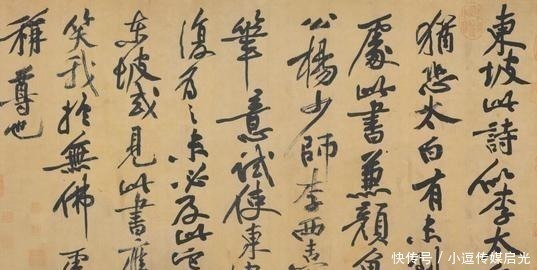 東坡此詩似李太
猶恐太白有未到
處此書兼顏魯
公楊少師李西臺
筆意試使東坡
復為之未必及此它
東坡或見此書應
笑我於無佛處
稱尊也
快传号 / 小逗传媒启光